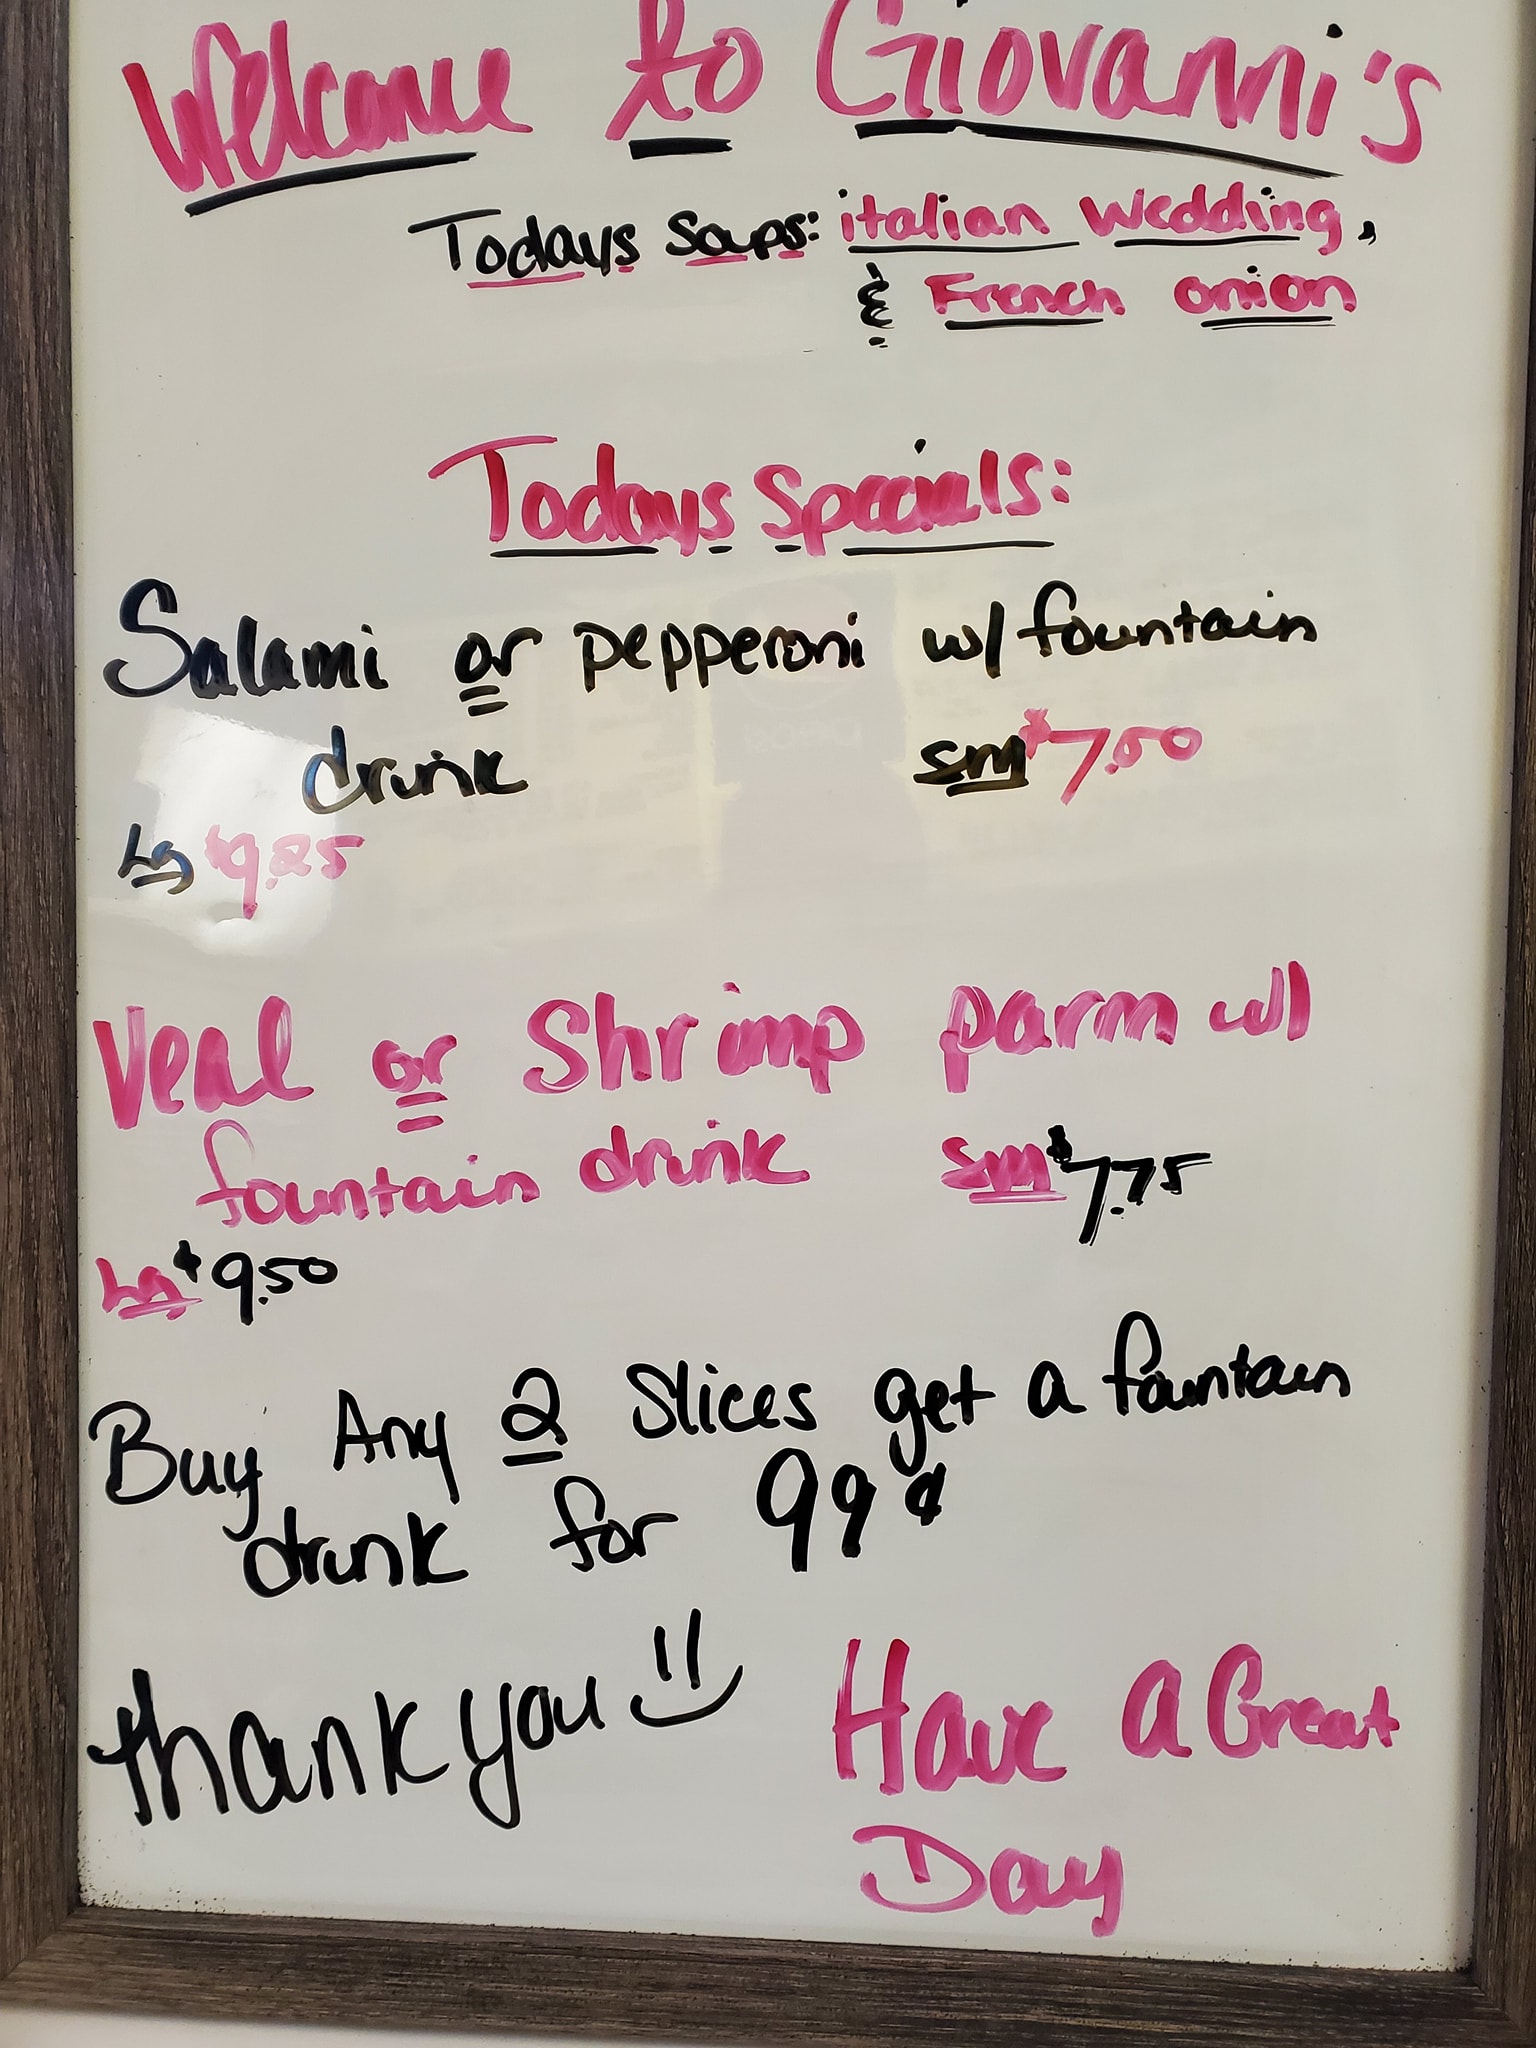 Welcome to Giovanni's
Todays Soups: italian wedding,
& French onion
Todays Specials:
Salami or pepperoni w/ fountain
drink sm $7.50
Lg $9.25
Veal or Shrimp parm w/
fountain drink sm $7.75
Lg $9.50
Buy Any 2 Slices get a fountain
drink for 99¢
thank you
Have A Great
Day